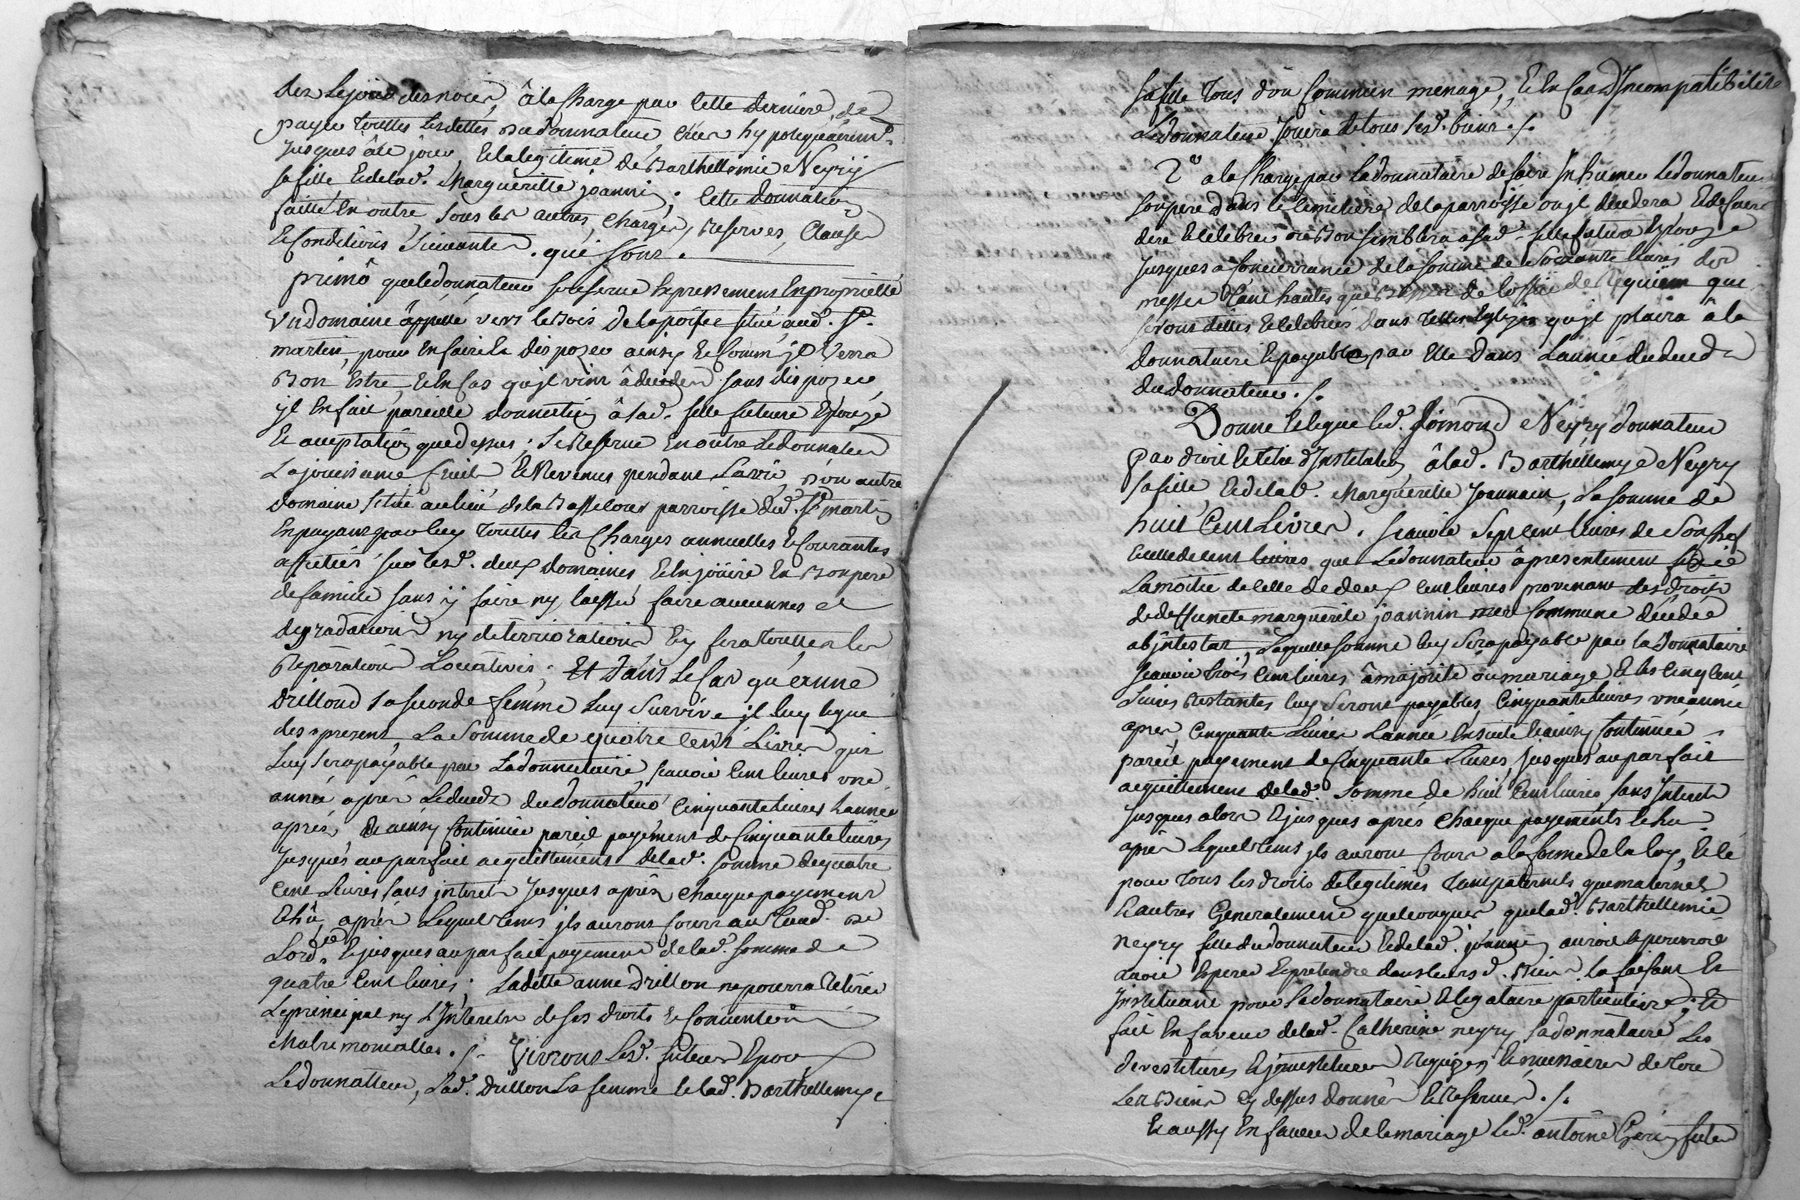 dez Le jour des noces, â la Charge par Cette derniere, de
payer touttes Les dettes du donnateur, Crées hypotequairemt.
Jusques â ce jour, Et la legitime de Barthellemie Neyry
sa fille Et de lad. Margueritte joannin; Cette donnation
faitte En outre sous les autres, Charges, Reserves, Clauses
Et Conditions Suivantes. qui sont.
primô que le donnateur se reserve Expressement En proprietté
Un domaine appellé vers le Bois de la poipe situé aud. St.
martin, pour En faire Et disposer ainsy Et Comm' jl Verra
Bon Estre, Et En Cas qu'jl vint â deceder sans disposer,
jl En fait pareille donnation â sad. fille future Epouze
Et acceptation que dessus. Se Reserve En outre Le donnateur
La jouissance fruits Et Revenus pendant Sa vie, D'un autre
domaine situé au lieu de la parroisse dud. St. martin
En payant par luy touttes les Charges annuelles Et Courantes
affectées sur lesd. deux domaines, Et En joüira En Bon pere
de famille sans y faire ny laisser faire aucunnes
degradations ny deterriorations Et y fera touttes les
Reparations Locatives; Et Dans Le Cas qu'anne
Drillond sa seconde femme Luy Survive, jl luy legue
des present La Somme de quatre Cents Livres qui
Luy sera payable par La donnataire, scavoir Cent livres une
année aprês Le decedz du donnateur Cinquante livres L'année
aprés, Et ainsy Continuer pareil payement de Cinquante livres
Jusques au parfait acquittement delad. Somme de quatre
Cent Livres sans interets Jusques aprês Chaque payement
Echû, aprês Lequel tems jls auront Cours au taud. de
L'ord. Et jusques au parfait payement de lad. somme de
quatre Cent livres; Laditte anne Drillon ne pourra Retirer
Le principal ny L'Interets de ses droits Et Conventions
Matrimonialles. /. Vivront Lesd. futeurs Epoux
Le donnatteur, Lad. Drillon Sa femme Et lad. Barthellemye
sa fille tous d'un Commun menage, Et En Cas D'Incompatibilité
Le donnateur Jouira de tous sesd. biens. /.
2o a la Charge par La donnataire de faire Inhumer Le donnateur
son pere dans le Cimetiere de la parroisse ou jl decedera Et de faire
dire Et Celebrer où Bon semblera a sad. fille future Epouze
Jusques a Concurrance de la somme de Soixante livres de
messes tant hautes que Basses de l'office de Requiem qui
seront dittes Et Celebrées dans telles Eglizes qu'jl plaira â la
donnataire Et payables par Elle dans L'année du decedz
du donnateur. /.
Donne Et legue led. Neyry donnateur
par droit Et titre d'Institution â lad. Barthellemye Neyry
sa fille, Et delad. Margueritte Joannin, La somme de
huit Cent Livres. Scavoir Sept Cent livres de Son chef
Et celle de Cent livres, que Le donnateur â presentement
La moitié de Celle de deux Cent livres provenant des droits
de deffuncte marguerite joannin mere Commune decedée
abjntestat, Laquelle somme luy sera payable par la Donnataire
scavoir trois Cent livres â majorité ou mariage Et les Cinq Cent
Livres Restantes luy seront payables, Cinquante livres une année
apres, Cinquante Livres L'année Ensuite Et ainsy Continuée
pareil payement de Cinquante Livres, jusques au parfait
acquittement delad. somme de huit Cent livres sans Interets
Jusques alors Et jusques aprés Chaque payements Echu
aprês Lequel tems jls auront Cours a la forme de la loy, Et Ce
pour tous les droits de legitimes tant paternels que maternels
Et autres Generalement quelconques que lad. Barthellemie
neyry fille du donnateur Et delad. joannin auroit Et pourroit
avoir Esperer Et pretendre dans leursd. Biens La faisant Et
Instituant pour sa donnataire Et legataire particuliere; Et
fait En faveur delad. Catherine neyry sa donnataire Les
devestitures Et jnvestitures Requises Et necessaires de tous
Les Biens cy dessus donnés Et Reserves. /.
Et aussy En faveur de Ce mariage Led. antoine futeur